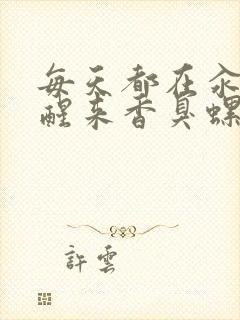 每天都在汆
醒来香臭螺
許雲